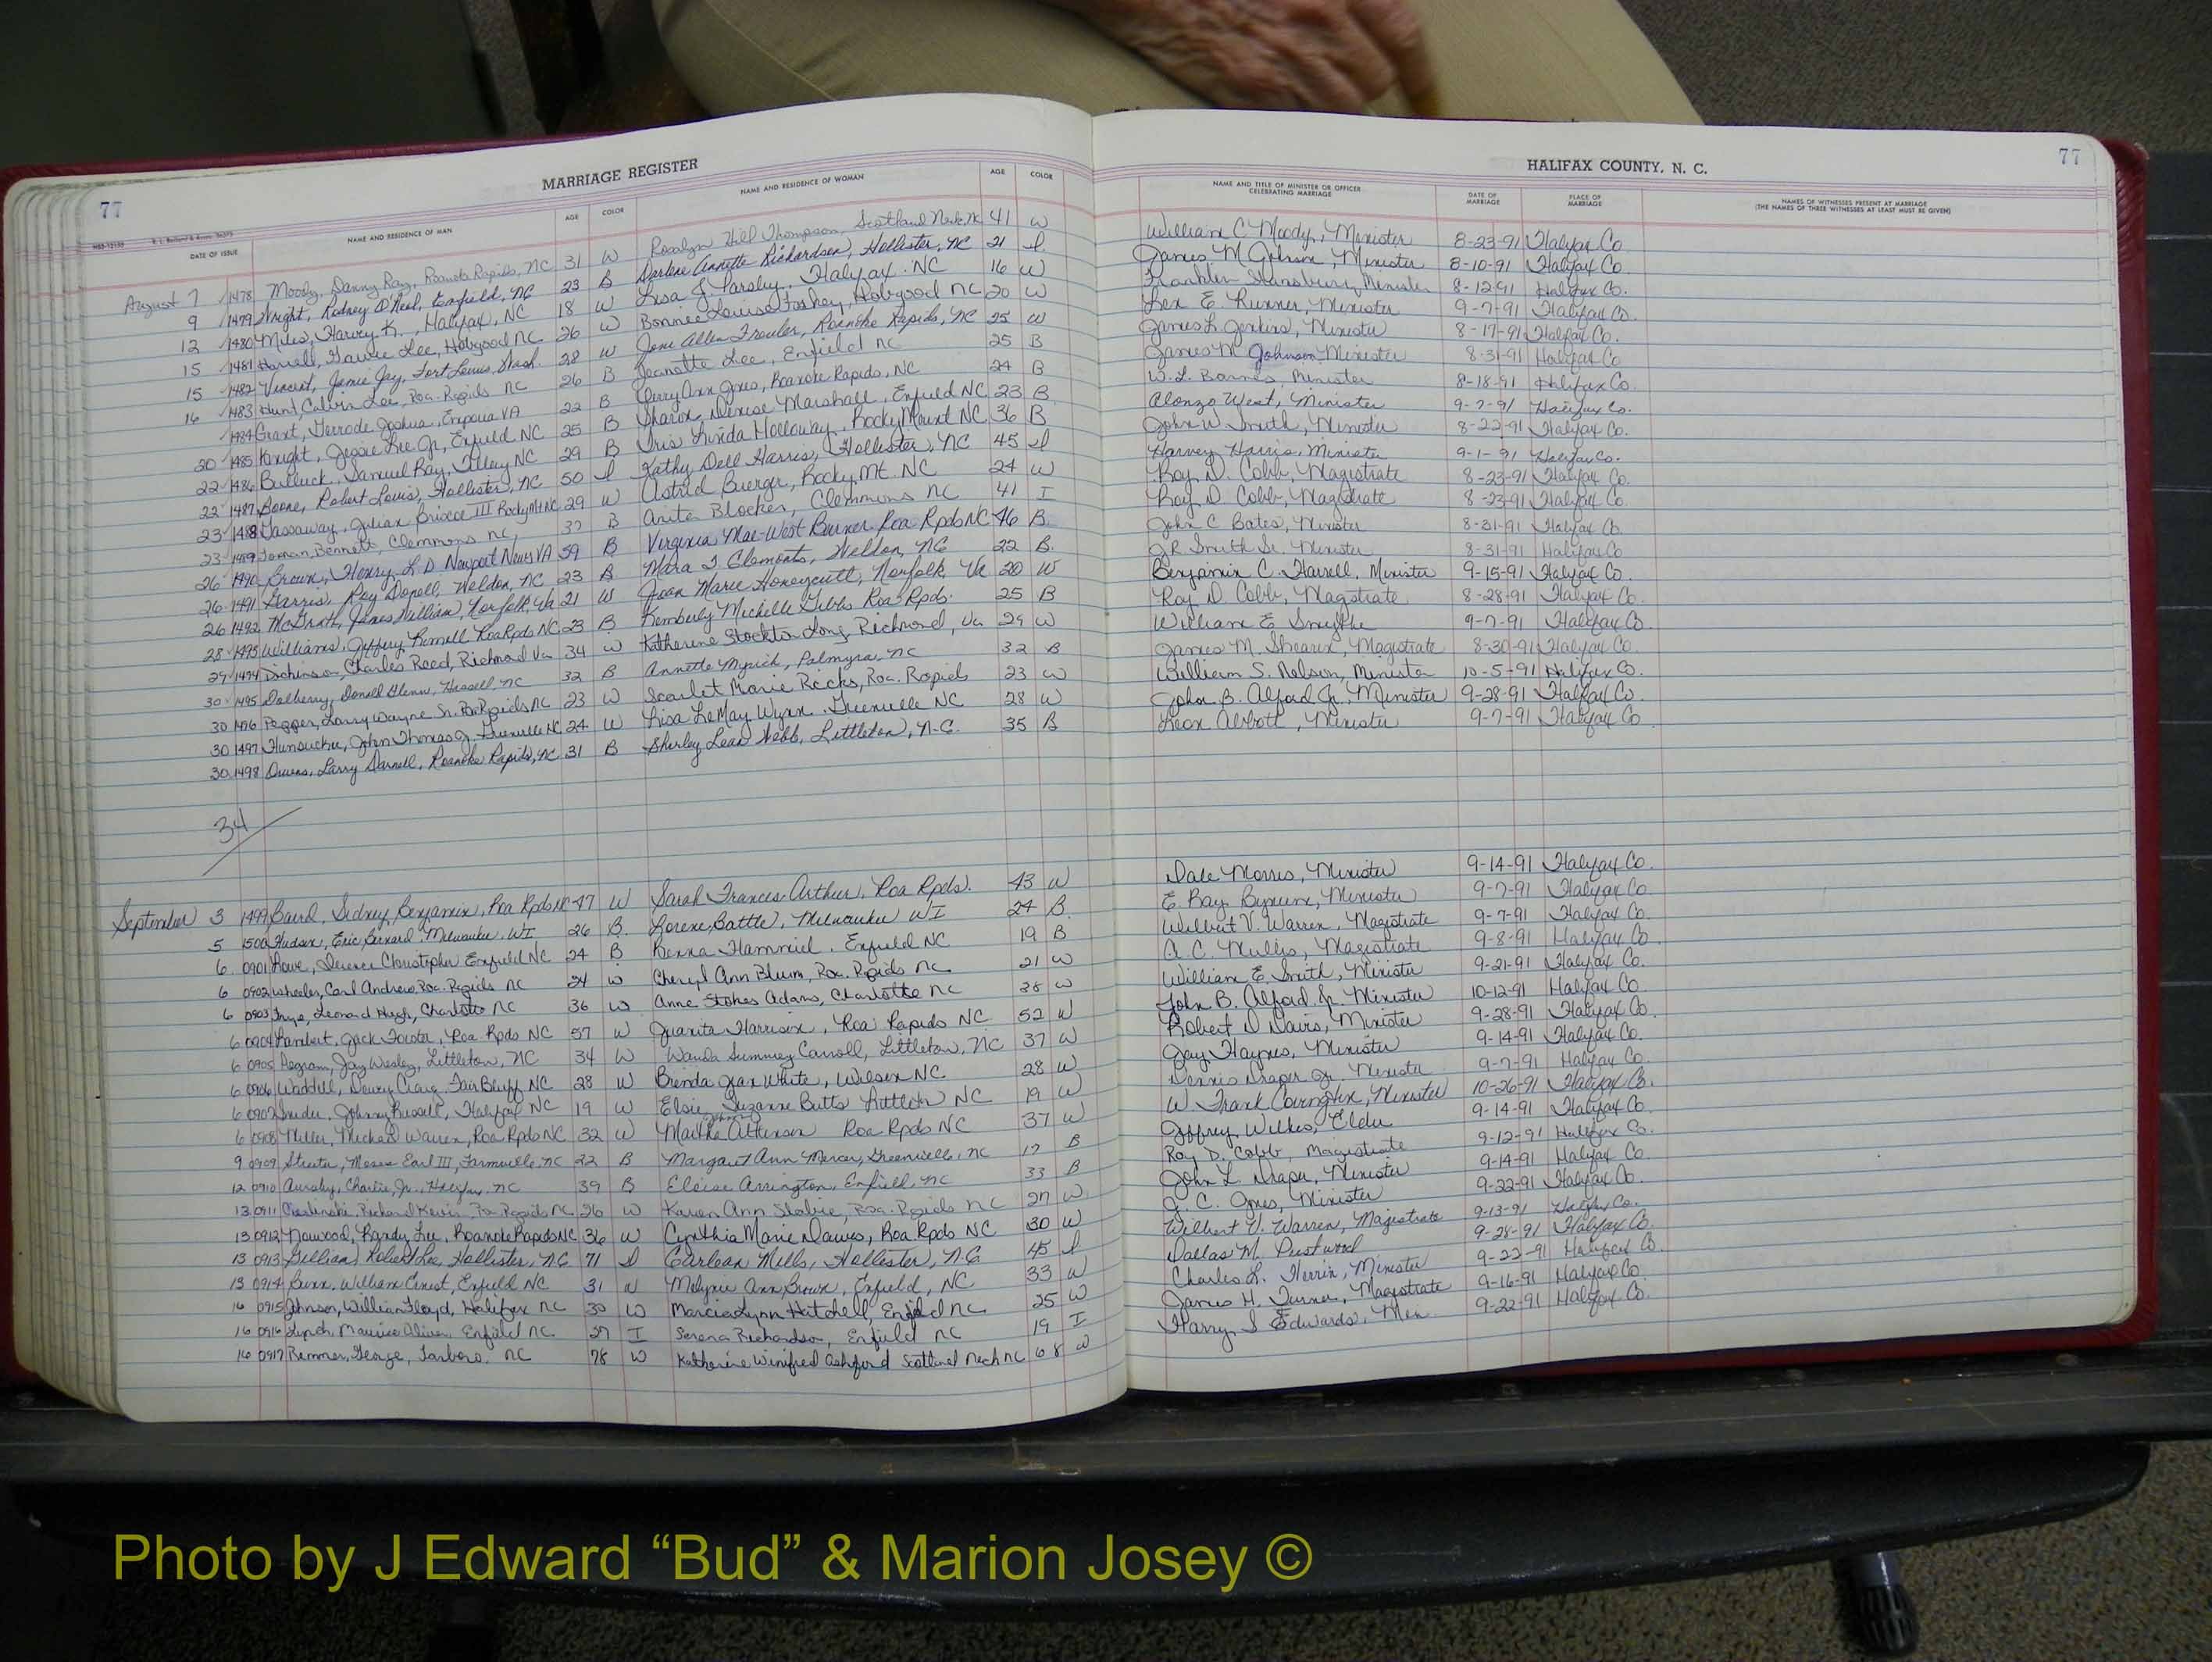 77
MARRIAGE REGISTER
DATE OF ISSUE NAME AND RESIDENCE OF MAN AGE COLOR NAME AND RESIDENCE OF WOMAN AGE COLOR
August 7 1478 Moody, Danny Ray, Roanoke Rapids, NC 31 W Rosalyn Hill Thompson, Scotland Neck, NC 41 W
9 1479 Wright, Rodney O'Neal, Enfield, NC 23 B Darlene Annette Richardson, Hollister, NC 21 I
12 1480 Miles, Harvey K., Halifax, NC 18 W Lisa J Parsley, Halifax NC 16 W
15 1481 Harrell, Lee, Hobgood NC 26 W Bonnie Louise Hobgood NC 20 W
15 1482 Vincent, Jamie Jay, Fort Lewis, Wash. 28 W Allen Roanoke Rapids, NC 25 W
16 1483 Hunt, Calvin Lee, Roa. Rapids NC 26 B Jeanette Lee, Enfield NC 25 B
1484 Grant, Joshua, Emporia VA 22 B Ann Roanoke Rapids, NC 24 B
20 1485 Knight, Jessie Lee Jr., Enfield NC 25 B Sharon Denise Marshall, Enfield NC 23 B
22 1486 Bulluck, Samuel Ray, Tillery NC 29 B Iris Linda Holloway, Rocky Mount NC 36 B
22 1487 Boone, Robert Louis, Hollister, NC 50 I Kathy Dell Harris, Hollister, NC 45 I
23 1488 Gassaway, Julian Briscoe III Rocky Mt NC 29 W Astrid Buerger, Rocky Mt. NC 24 W
23 1489 Bennett, Clemmons NC, B Anita Blocker, Clemmons NC 41 I
26 1490 Brown, Henry L. D. Newport News VA 59 B Virginia Mae West Roa Rpds NC 46 B
26 1491 Harris, Roy Donell, Weldon, NC 23 B Clemonts, Weldon, NC 22 B
26 1492 McGrath, James William, Norfolk, Va 21 W Joan Marie Honeycutt, Norfolk, Va 20 W
28 1493 Williams, Jeffrey Roa Rpds NC 23 B Kimberly Michelle Roa Rpds. 25 B
29 1494 Dickinson, Charles Reed, Richmond Va 34 W Katherine Stockton Long Richmond, Va 29 W
30 1495 Dolberry, Donald Glenn, Hassell NC 32 B Annette Myrick, Palmyra NC 32 B
30 1496 Pepper, Larry Wayne Sr. Roa Rapids NC 23 W Scarlet Marie Ricks, Roa. Rapids 23 W
30 1497 Hunsucker, John Thomas Jr. Greenville NC 24 W Lisa LeMay Wynn, Greenville NC 28 W
30 1498 Owens, Larry Darnell, Roanoke Rapids, NC 31 B Shirley Webb, Littleton, N.C. 35 B
34
September 3 1499 Baird, Sidney Benjamin, Roa Rpds NC 47 W Sarah Frances Arthur, Roa Rpds. 43 W
5 1500 Hudson, Eric Bernard Milwaukee, WI 26 B Lorene Battle, Milwaukee WI 24 B
6 0901 Lowe, Christopher Enfield NC 24 B Enfield NC 19 B
6 0902 Wheeler, Carl Andrew, Roa. Rapids NC 24 W Cheryl Ann Blum, Roa. Rapids NC 21 W
6 0903 Frye, Leonard Hugh, Charlotte NC 36 W Anne Stokes Adams, Charlotte NC 38 W
6 0904 Lambert, Jack Foister, Roa Rpds NC 57 W Juanita Harrison, Roa Rapids NC 52 W
6 0905 Pegram, Jay Wesley, Littleton, NC 34 W Wanda Summey Carroll, Littleton, NC 37 W
6 0906 Waddell, Dewey Craig, Fair Bluff NC 28 W Brenda Jean White, Wilson NC 28 W
6 0907 Johnny Russell, Halifax NC 19 W Elsie Suzanne Butts Littleton NC 19 W
6 0908 Miller, Michael Warren, Roa Rpds NC 32 W Martha Atkinson Roa Rpds NC 37 W
9 0909 Streeter, Moses Earl III, Farmville, NC 22 B Margaret Ann Mercer, Greenville, NC 17 B
12 0910 Aursby, Charlie, Jr., Halifax, NC 39 B Eloise Arrington, Enfield, NC 33 B
13 0911 Richard Kevin, Roa Rapids NC 26 W Karen Ann Roa. Rapids NC 27 W
13 0912 Norwood, Randy Lee, Roanoke Rapids NC 36 W Cynthia Marie Dawes, Roa Rpds NC 30 W
13 0913 Gilliam, Robert Lee, Hollister, NC 71 I Carlean Mills, Hollister, N.C. 45 I
13 0914 Bunn, William Ernest, Enfield NC 31 W Ann Brown, Enfield, NC 33 W
16 0915 Johnson, William Floyd, Halifax NC 30 W Marcia Lynn Hatchell, Enfield NC 25 W
16 0916 Lynch, Maurice Oliver, Enfield NC 27 I Serena Richardson, Enfield NC 19 I
16 0917 George, Tarboro, NC 78 W Katherine Winifred Ashford Scotland Neck NC 68 W
77
HALIFAX COUNTY, N. C.
NAME AND TITLE OF MINISTER OR OFFICER CELEBRATING MARRIAGE DATE OF MARRIAGE PLACE OF MARRIAGE NAMES OF WITNESSES PRESENT AT MARRIAGE (THE NAMES OF THREE WITNESSES AT LEAST MUST BE GIVEN)
William C. Moody, Minister 8-23-91 Halifax Co.
James M Johnson, Minister 8-10-91 Halifax Co.
Franklin Stansbury, Minister 8-12-91 Halifax Co.
E. Minister 9-7-91 Halifax Co.
James L. Jenkins, Minister 8-17-91 Halifax Co.
James M. Johnson Minister 8-31-91 Halifax Co
W. L. Barnes, Minister 8-18-91 Halifax Co.
Alonzo West, Minister 9-7-91 Halifax Co.
John W. Smith, Minister 8-22-91 Halifax Co.
Harvey Harris, Minister 9-1-91 Halifax Co.
Roy D. Cobb, Magistrate 8-23-91 Halifax Co.
Roy D. Cobb, Magistrate 8-23-91 Halifax Co.
John C Bates, Minister 8-31-91 Halifax Co.
J R Smith Sr. Minister 8-31-91 Halifax Co
Benjamin C. Harrell, Minister 9-15-91 Halifax Co.
Roy D. Cobb, Magistrate 8-28-91 Halifax Co.
William E Smythe 9-7-91 Halifax Co.
James M. Shearin, Magistrate 8-30-91 Halifax Co.
William S. Nelson, Minister 10-5-91 Halifax Co.
John B. Alford Jr., Minister 9-28-91 Halifax Co.
Leon Abbott, Minister 9-7-91 Halifax Co
Dale Morris, Minister 9-14-91 Halifax Co.
E. Ray Bynum, Minister 9-7-91 Halifax Co
Wilbert V. Warren, Magistrate 9-7-91 Halifax Co.
A. C. Mullis, Magistrate 9-8-91 Halifax Co
William E. Smith, Minister 9-21-91 Halifax Co.
John B. Alford Jr. Minister 10-12-91 Halifax Co.
Robert D Davis, Minister 9-28-91 Halifax Co.
Jay Haynes, Minister 9-14-91 Halifax Co.
Dennis Draper Jr. Minister 9-7-91 Halifax Co.
W. Frank Covington, Minister 10-26-91 Halifax Co.
Jeffrey Wilkes, Elder 9-14-91 Halifax Co.
Roy D. Cobb, Magistrate 9-12-91 Halifax Co.
John L. Draper, Minister 9-14-91 Halifax Co.
J. C. Jones, Minister 9-22-91 Halifax Co.
Wilbert V. Warren, Magistrate 9-13-91 Halifax Co.
Dallas M. Prestwood 9-28-91 Halifax Co.
Charles L. Herrin, Minister 9-22-91 Halifax Co.
James H. Turner, Magistrate 9-16-91 Halifax Co.
Harry S Edwards, Min. 9-22-91 Halifax Co.
Photo by J Edward “Bud” & Marion Josey ©